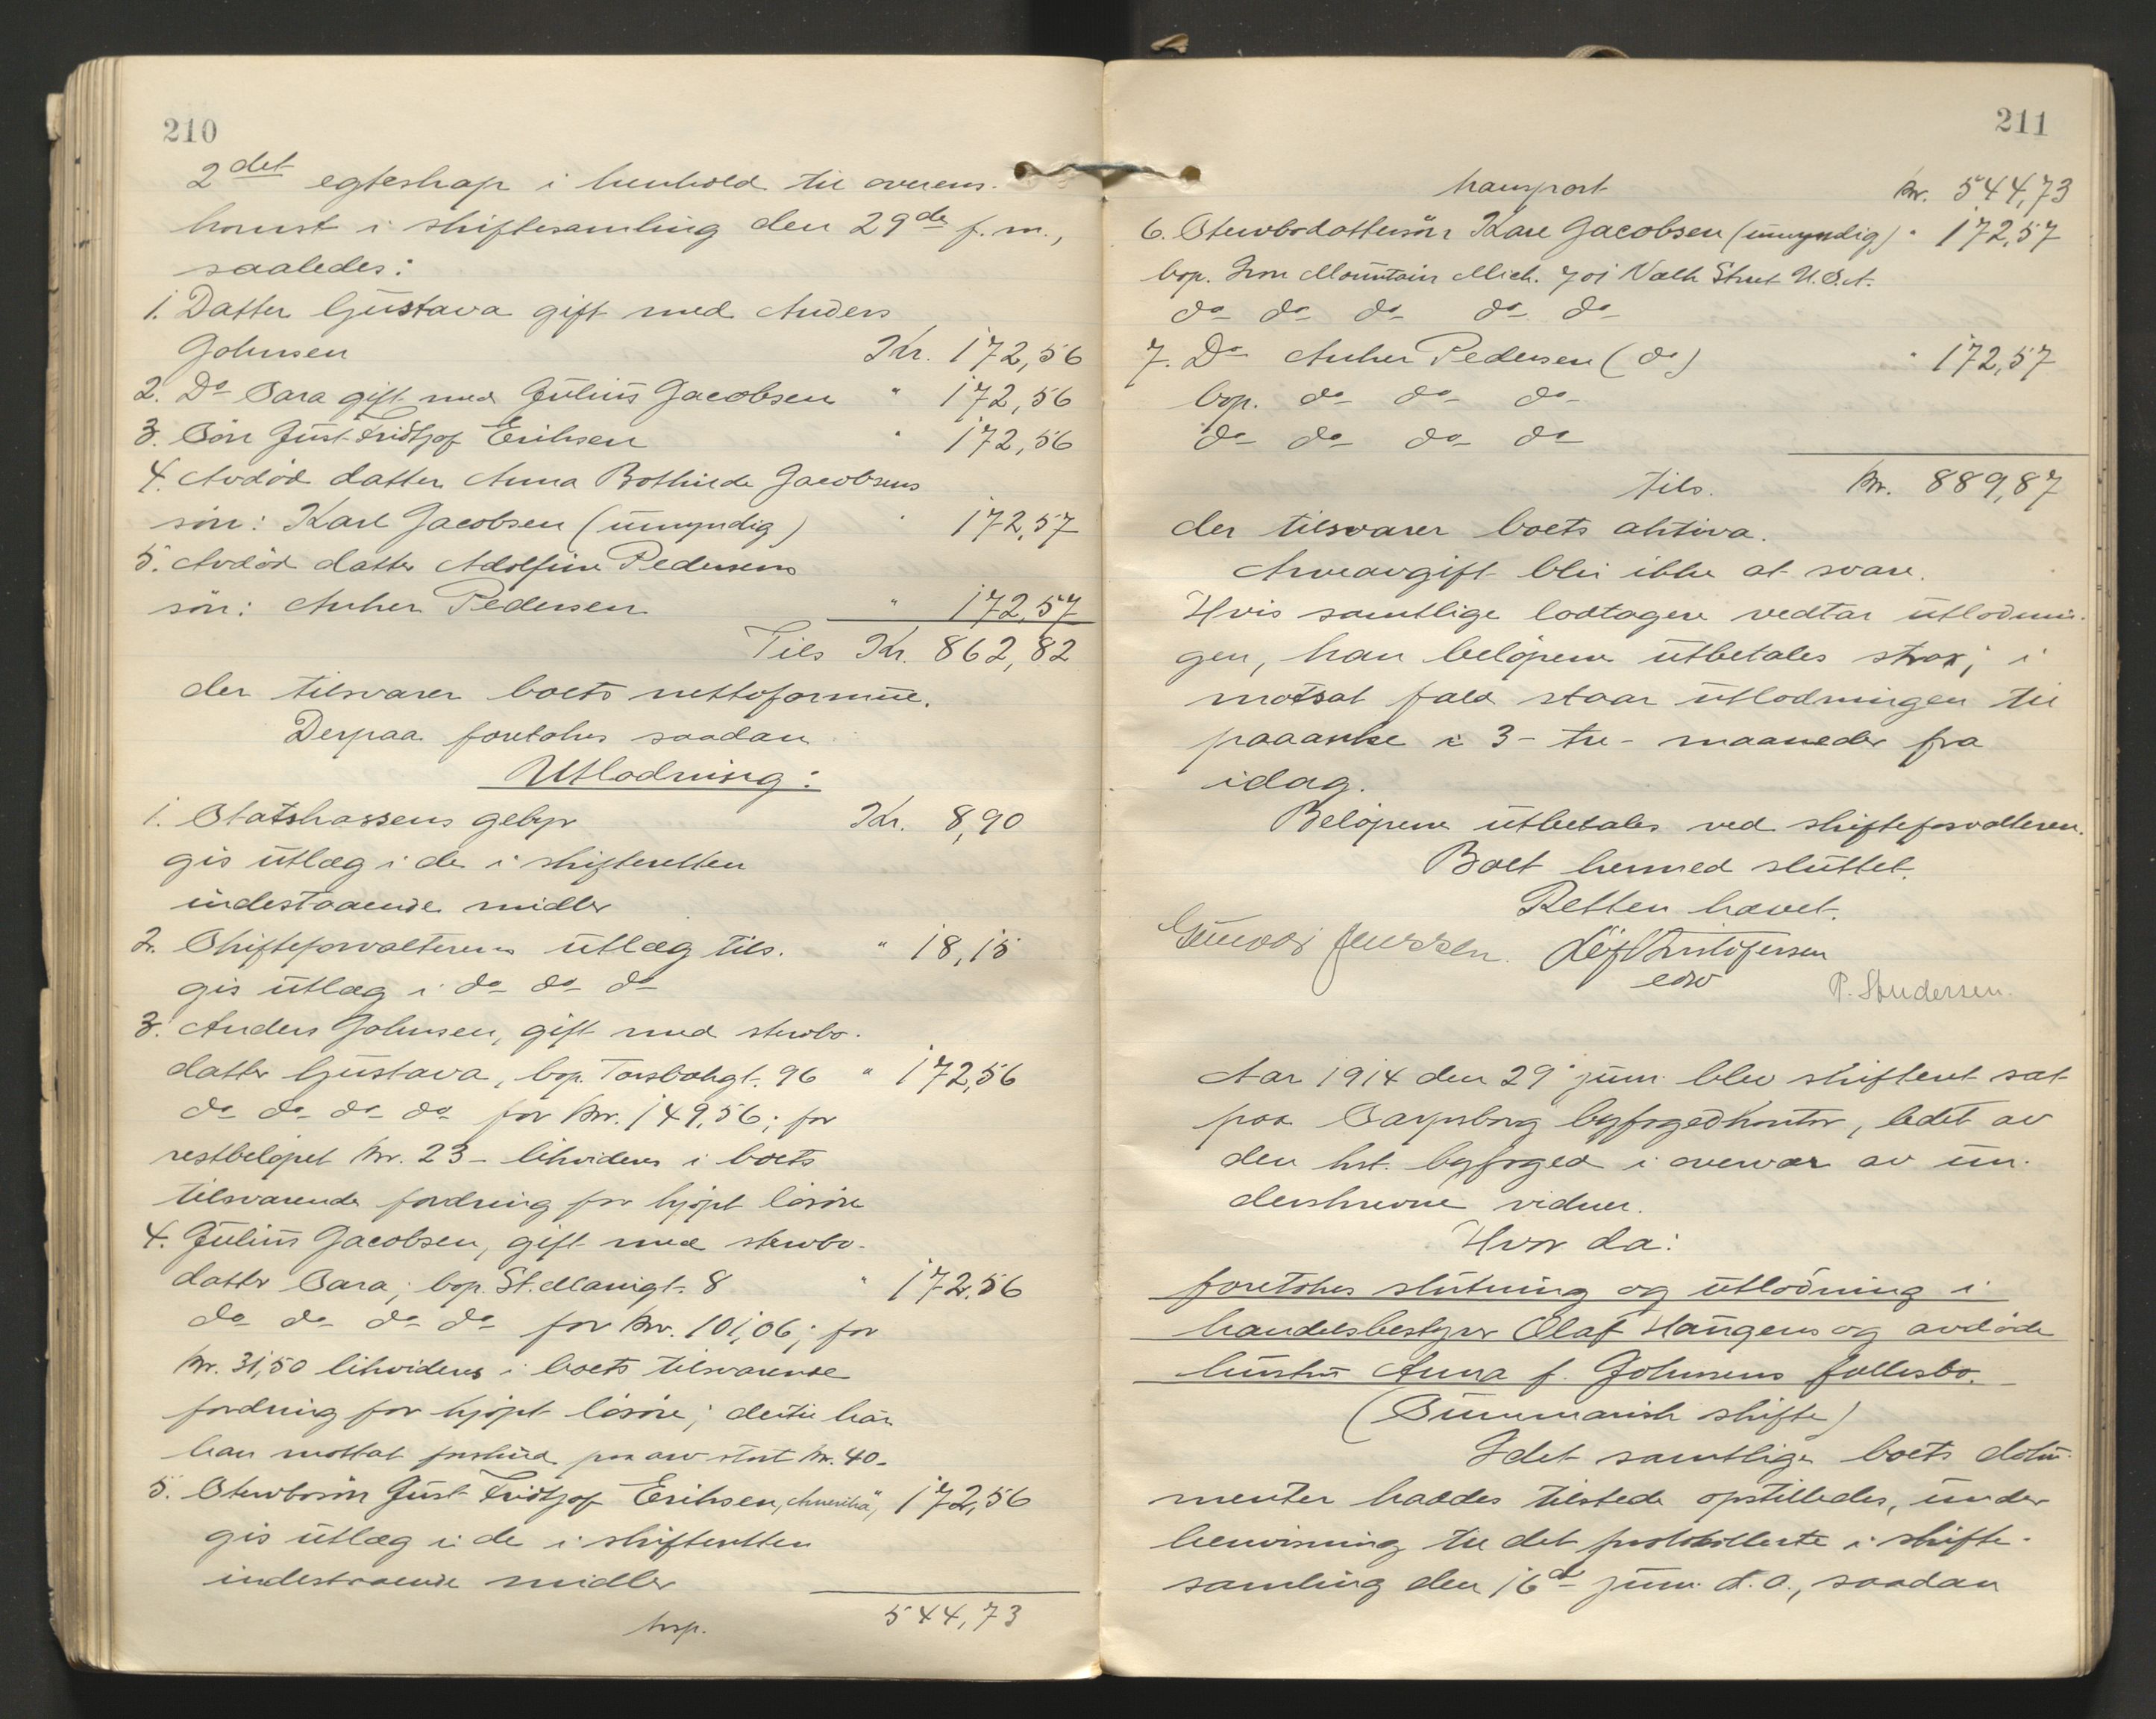 210
2det egteskap i henhold til overens-
komst i skiftesamling den 29de f.m.,
saaledes:
1. Datter Gustava gift med Anders
Johnsen Kr. 172,56
2. Do Sara gift med Julius Jacobsen " 172,56
3. Søn Just Fridtjof Eriksen " 172,56
4. Avdød datter Anna Bothilde Jacobsens
søn: Karl Jacobsen (umyndig) " 172,57
5. Avdød datter Adolfine Pedersens
søn: Anker Pedersen " 172,57
Tils Kr. 862,82
der tilsvarer boets nettoformue.
Derpaa foretokes saadan
Utlodning:
1. Statskassens gebyr Kr. 8,90
gis utlæg i de i skifteretten
indestaaende midler
2. Skifteforvalterens utlæg tils. " 18,15
gis utlæg i do do do
3. Anders Johnsen, gift med stervbo-
datter Gustava, bop. Torsbækgt. 96 " 172,56
do do do do for kr. 149,56; for
restbeløpet kr. 23 - likvideres i boets
tilsvarende fordring for kjøpt løsøre
4. Julius Jacobsen, gift med stervbo-
datter Sara; bop. St. Mariegt. 8 " 172.56
do do do do for kr. 101,06; for
kr. 31,50 likvideres i boets tilsvarende
fordring for kjøpt løsøre; dertil har
han mottat forskud paa arv stort kr. 40-
5. Stervbosøn Just Fridtjof Eriksen, Amerika, 172,56
gis utlæg i de i skifteretten
indestaaende midler
trsp. 544,73
211
transport kr. 544,73
6. Stervbodattersøn Karl Jacobsen (umyndig) " 172,57
bop. Iron Mountain Mich. 701 Street U.S.A.
do do do do do
7. Do Anker Pedersen (do) " 172,57
bop. do do do
do do do do
tils. kr. 889,87
der tilsvarer boets aktiva.
Arveavgift blir ikke at svare.
Hvis samtlige lodtagere vedtar utlodnin-
gen, kan beløpene utbetales strax; i
motsat fald staar utlodningen til
paaanke i 3 - tre - maaneder fra
idag.
Beløpene utbetales ved skifteforvalteren.
Boet hermed sluttet.
Retten hævet.
Jenssen. Leif Kristofersen
edsv P. Andersen.
Aar 1914 den 29 juni blev skifteret sat
paa Sarpsborg byfogedkontor, ledet av
den kst. byfoged i overvær av un-
derskrevne vidner.
Hvor da:
foretokes slutning og utlodning i
handelsbestyrer Olaf Haugens og avdøde
hustru Anna f. Johnsens fællesbo.
(Summarisk skifte)
Idet samtlige boets doku-
menter haddes tilstede opstilledes, under
henvisning til det protokollerte i skifte-
samling den 16de juni d.a., saadan